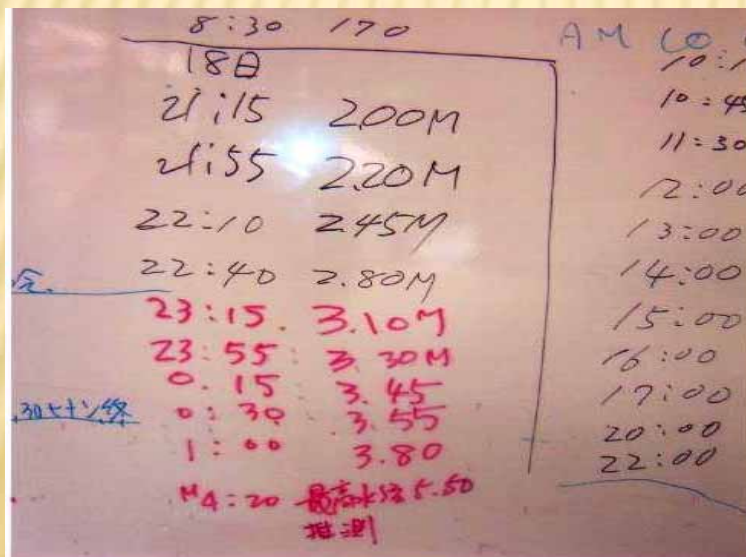 8:30 170
18日
21:15 2.00M
21:55 2.20M
22:10 2.45M
22:40 2.80M
23:15. 3.10M
23:55 3.30M
0.15 3.45
0:30 3.55
1:00 3.80
M4:20 最高水位5.50
推測
終
AM
10:
10:45
11:30
12:00
13:00
14:00
15:00
16:00
17:00
20:00
22:00